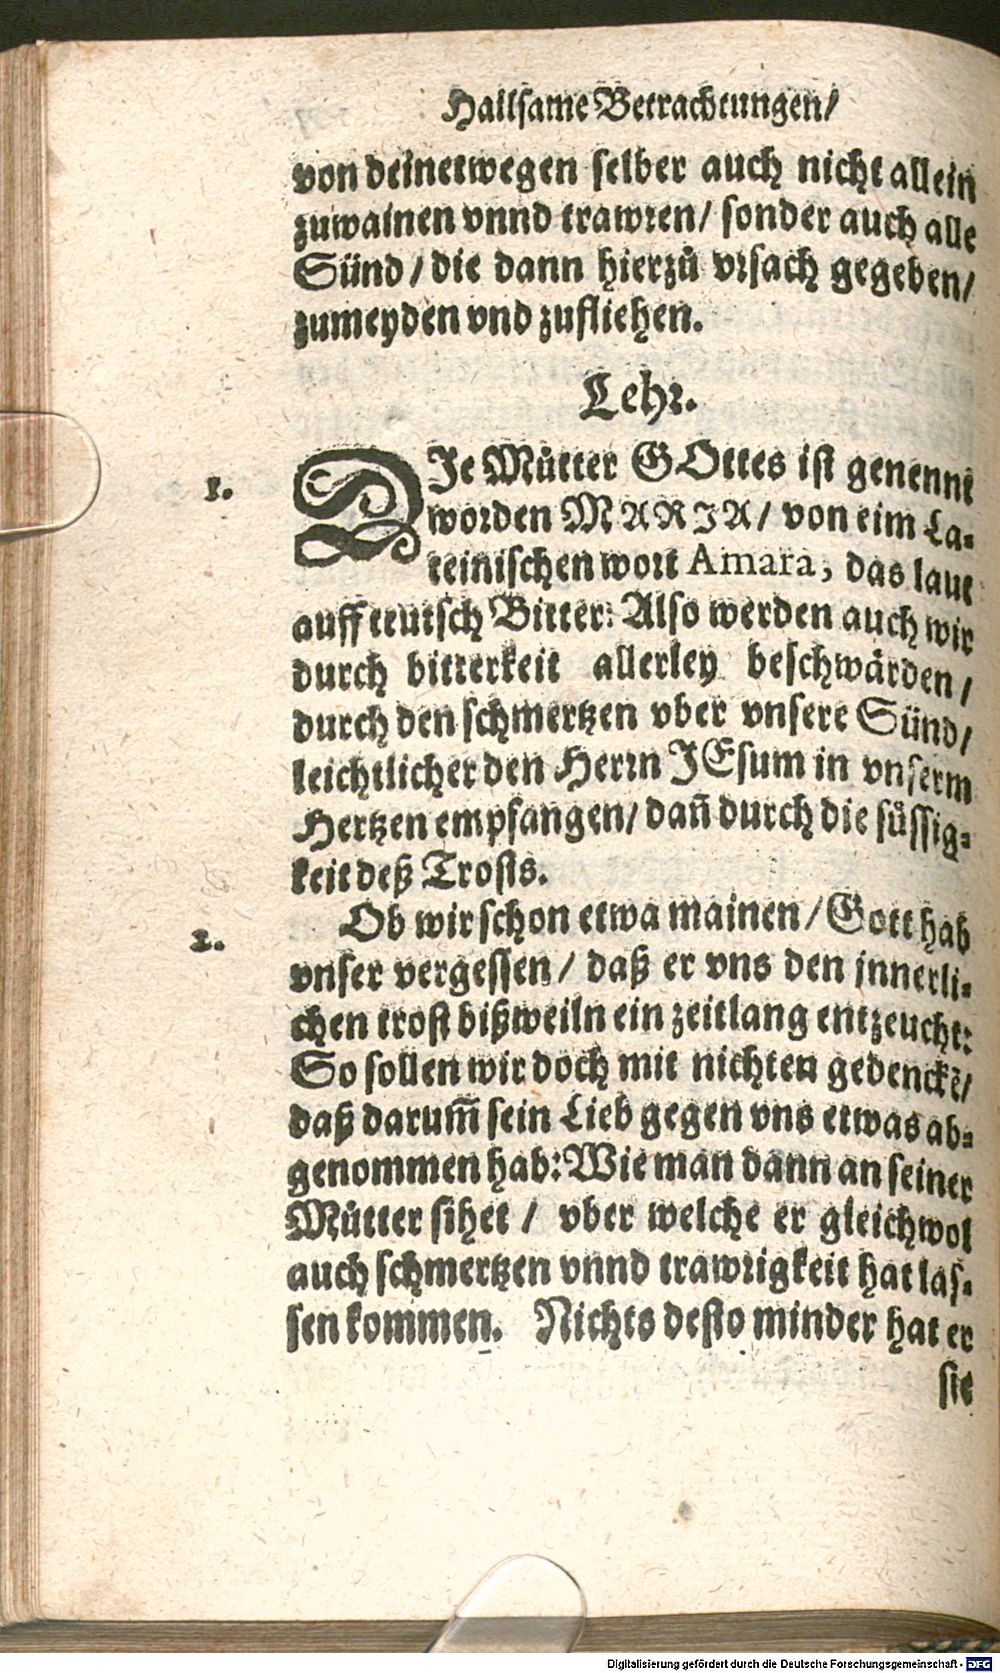 Hailsame Betrachtungen/
von deinetwegen selber auch nicht allein
zuwainen vnnd trawren/ sonder auch alle
Sünd/ die dann hierzů vrsach gegeben/
zumeyden vnd zufliehen.
Lehr.
1. DIe Můtter GOttes ist genennt
worden MARIA/ von eim La-
teinischen wort Amara, das laut
auff teutsch Bitter: Also werden auch wir
durch bitterkeit allerley beschwärden/
durch den schmertzen vber vnsere Sünd/
leichtlicher den Herrn JEsum in vnserm
Hertzen empfangen/ dañ durch die süssig-
keit deß Trosts.
2. Ob wir schon etwa mainen/ Gott hab
vnser vergessen/ daß er vns den jnnerli-
chen trost bißweiln ein zeitlang entzeucht:
So sollen wir doch mit nichten gedenckē/
daß darum̄ sein Lieb gegen vns etwas ab-
genommen hab: Wie man dann an seiner
Můtter sihet / vber welche er gleichwol
auch schmertzen vnnd trawrigkeit hat las-
sen kommen. Nichts desto minder hat er
sie
Digitalisierung gefördert durch die Deutsche Forschungsgemeinschaft - DFG